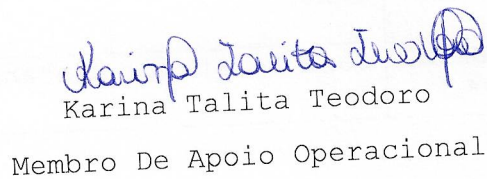 Karina Talita Teodoro
Karina Talita Teodoro
Membro De Apoio Operacional